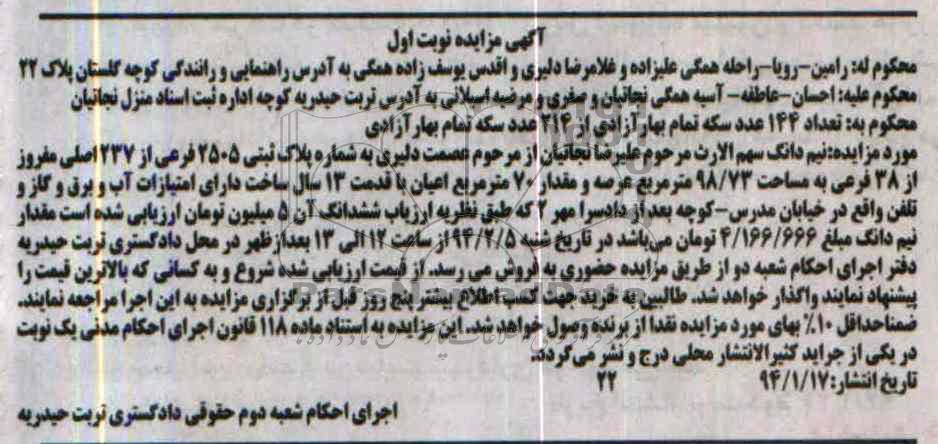 آگهی مزایده نوبت اول
محکوم له: رامین-رویا-راحله همگی علیزاده و غلامرضا دلیری و اقدس یوسف زاده همگی به آدرس راهنمایی و رانندگی کوچه گلستان پلاک ۲۲
محکوم علیه: احسان-عاطفه- آسیه همگی نجاتیان و صغری و مرضیه اسیلانی به آدرس تربت حیدریه کوچه اداره ثبت اسناد منزل نجاتیان
محکوم به: تعداد ۱۴۴ عدد سکه تمام بهار آزادی از ۲۱۴ عدد سکه تمام بهار آزادی
مورد مزایده:نیم دانگ سهم الارث مرحوم علیرضا نجاتیان از مرحوم عصمت دلیری به شماره پلاک ثبتی ۲۵۰۵ فرعی از ۲۳۷ اصلی مفروز
از ۳۸ فرعی به مساحت ۹۸/۷۳ مترمربع عرصه و مقدار ۷۰ مترمربع اعیان با قدمت ۱۳ سال ساخت دارای امتیازات آب و برق و گاز و
تلفن واقع در خیابان مدرس-کوچه بعد از دادسرا مهر ۲ که طبق نظریه ارزیاب ششدانگ آن ۵ میلیون تومان ارزیابی شده است مقدار
نیم دانگ مبلغ ۴/۱۶۶/۶۶۶ تومان می‌باشد در تاریخ شنبه ۹۴/۲/۵ از ساعت ۱۲ الی ۱۳ بعدازظهر در محل دادگستری تربت حیدریه
دفتر اجرای احکام شعبه دو از طریق مزایده حضوری به فروش می رسد. از قیمت ارزیابی شده شروع و به کسانی که بالاترین قیمت را
پیشنهاد نمایند واگذار خواهد شد. طالبین به خرید جهت کسب اطلاع بیشتر پنج روز قبل از برگزاری مزایده به این اجرا مراجعه نمایند.
ضمنا حداقل ۱۰٪ بهای مورد مزایده نقدا از برنده وصول خواهد شد. این مزایده به استناد ماده ۱۱۸ قانون اجرای احکام مدنی یک نوبت
در یکی از جراید کثیرالانتشار محلی درج و نشر می‌گردد.
تاریخ انتشار: ۹۴/۱/۱۷ ۲۲
اجرای احکام شعبه دوم حقوقی دادگستری تربت حیدریه